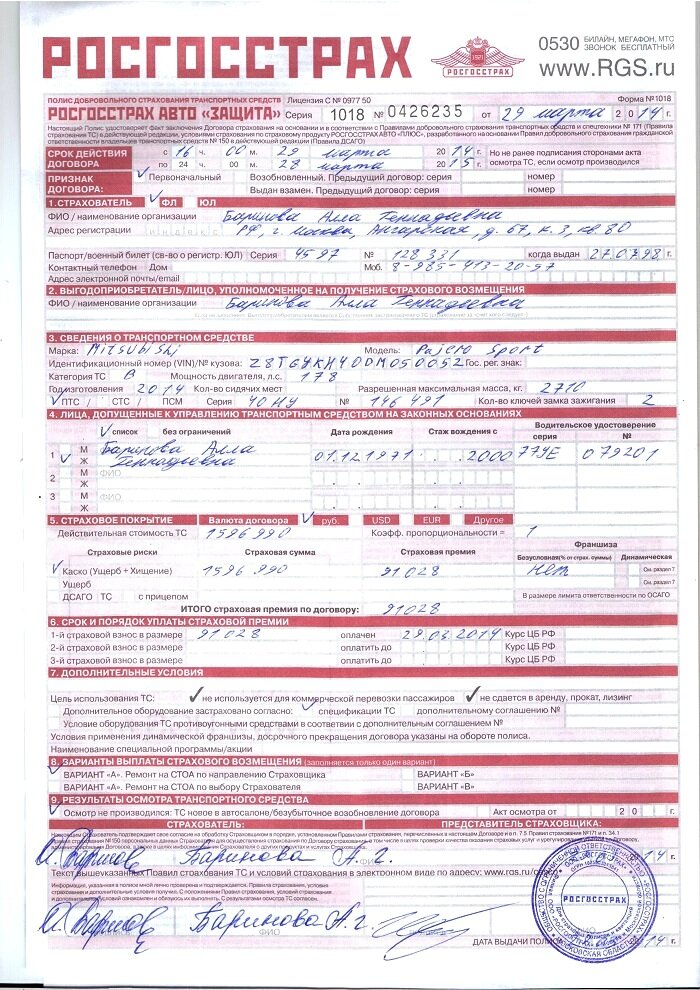 РОСГОССТРАХ
РОСГОССТРАХ
0530 БИЛАЙН, МЕГАФОН, МТС
ЗВОНОК БЕСПЛАТНЫЙ
www.RGS.ru
ПОЛИС ДОБРОВОЛЬНОГО СТРАХОВАНИЯ ТРАНСПОРТНЫХ СРЕДСТВ Лицензия С № 0977 50 Форма №1018
РОСГОССТРАХ АВТО «ЗАЩИТА» Серия 1018 № 0426235 от 29 марта 2014 г.
Настоящий Полис удостоверяет факт заключения Договора страхования на основании и в соответствии с Правилами добровольного страхования транспортных средств и спецтехники № 171 (Правила
страхования ТС) в действующей редакции, условиями страхования по страховому продукту РОСГОССТРАХ АВТО «ПЛЮС», разработанного на основании Правил добровольного страхования гражданской
ответственности владельцев транспортных средств № 150 в действующей редакции (Правила ДСАГО)
СРОК ДЕЙСТВИЯ ДОГОВОРА с 16 ч. 00 м. 29 марта 2014 г. Но не ранее подписания сторонами акта
по 24 ч. 00 м. 28 марта 2015 г. осмотра ТС, если осмотр производился
ПРИЗНАК ДОГОВОРА: Первоначальный Возобновленный. Предыдущий договор: серия номер
Выдан взамен. Предыдущий договор: серия номер
1.СТРАХОВАТЕЛЬ ФЛ ЮЛ
ФИО / наименование организации Баринова Алла Геннадьевна
Адрес регистрации индекс РФ, г. Москва, Ангарская, д. 67, к. 3, кв. 80
Паспорт/военный билет (св-во о регистр. ЮЛ) Серия 4597 № 128331 когда выдан 27.07.98 г.
Контактный телефон Дом Моб. 8-985-413-20-57
Адрес электронной почты/email
2. ВЫГОДОПРИОБРЕТАТЕЛЬ/ЛИЦО, УПОЛНОМОЧЕННОЕ НА ПОЛУЧЕНИЕ СТРАХОВОГО ВОЗМЕЩЕНИЯ
ФИО / наименование организации Баринова Алла Геннадьевна
3. СВЕДЕНИЯ О ТРАНСПОРТНОМ СРЕДСТВЕ
Марка: Mitsubishi Модель: Pajero Sport
Идентификационный номер (VIN)/№ кузова: Z8TGYKHY0DM050052 Гос. рег. знак:
Категория ТС В Мощность двигателя, л.с. 178
Год изготовления 2014 Кол-во сидячих мест Разрешенная максимальная масса, кг. 2710
ПТС / СТС / ПСМ Серия 40НУ № 146491 Кол-во ключей замка зажигания 2
4. ЛИЦА, ДОПУЩЕННЫЕ К УПРАВЛЕНИЮ ТРАНСПОРТНЫМ СРЕДСТВОМ НА ЗАКОННЫХ ОСНОВАНИЯХ
список без ограничений Дата рождения Стаж вождения с Водительское удостоверение
серия №
1 М Ж Баринова Алла Геннадьевна 01.12.1971 2000 77УЕ 079201
2 М Ж ФИО
3 М Ж ФИО
5. СТРАХОВОЕ ПОКРЫТИЕ Валюта договора руб. USD EUR Другое
Действительная стоимость ТС 1596990 Коэфф. пропорциональности = 1
Страховые риски Страховая сумма Страховая премия Франшиза
Безусловная(% от страх. суммы) Динамическая
Каско (Ущерб + Хищение) 1596990 91028 нет См. раздел 7
Ущерб См. раздел 7
ДСАГО ТС с прицепом В размере лимита ответственности по ОСАГО
ИТОГО страховая премия по договору: 91028
6. СРОК И ПОРЯДОК УПЛАТЫ СТРАХОВОЙ ПРЕМИИ
1-й страховой взнос в размере 91028 оплачен 29.03.2014 Курс ЦБ РФ
2-й страховой взнос в размере оплатить до Курс ЦБ РФ
3-й страховой взнос в размере оплатить до Курс ЦБ РФ
7. ДОПОЛНИТЕЛЬНЫЕ УСЛОВИЯ
Цель использования ТС: не используется для коммерческой перевозки пассажиров не сдается в аренду, прокат, лизинг
Дополнительное оборудование застраховано согласно: спецификации ТС дополнительному соглашению №
Условие оборудования ТС противоугонными средствами в соответствии с дополнительным соглашением №
Условия применения динамической франшизы, досрочного прекращения договора указаны на обороте полиса.
Наименование специальной программы/акции
8. ВАРИАНТЫ ВЫПЛАТЫ СТРАХОВОГО ВОЗМЕЩЕНИЯ (заполняется только один вариант)
ВАРИАНТ «А». Ремонт на СТОА по направлению Страховщика ВАРИАНТ «Б»
ВАРИАНТ «А». Ремонт на СТОА по выбору Страхователя ВАРИАНТ «В»
9. РЕЗУЛЬТАТЫ ОСМОТРА ТРАНСПОРТНОГО СРЕДСТВА
Осмотр не производился: ТС новое в автосалоне/безубыточное возобновление договора Акт осмотра от 20 г.
СТРАХОВАТЕЛЬ: ПРЕДСТАВИТЕЛЬ СТРАХОВЩИКА:
Баринова А. Г.
Текст вышеуказанных Правил страхования ТС и условий страхования в электронном виде по адресу: www.rgs.ru
Информация, указанная в полисе мной лично проверена и подтверждается. Правила страхования, условия
страхования и дополнительные условия получил.
Баринова А. Г.
РОСГОССТРАХ
ДАТА ВЫДАЧИ ПОЛИСА 14 г.